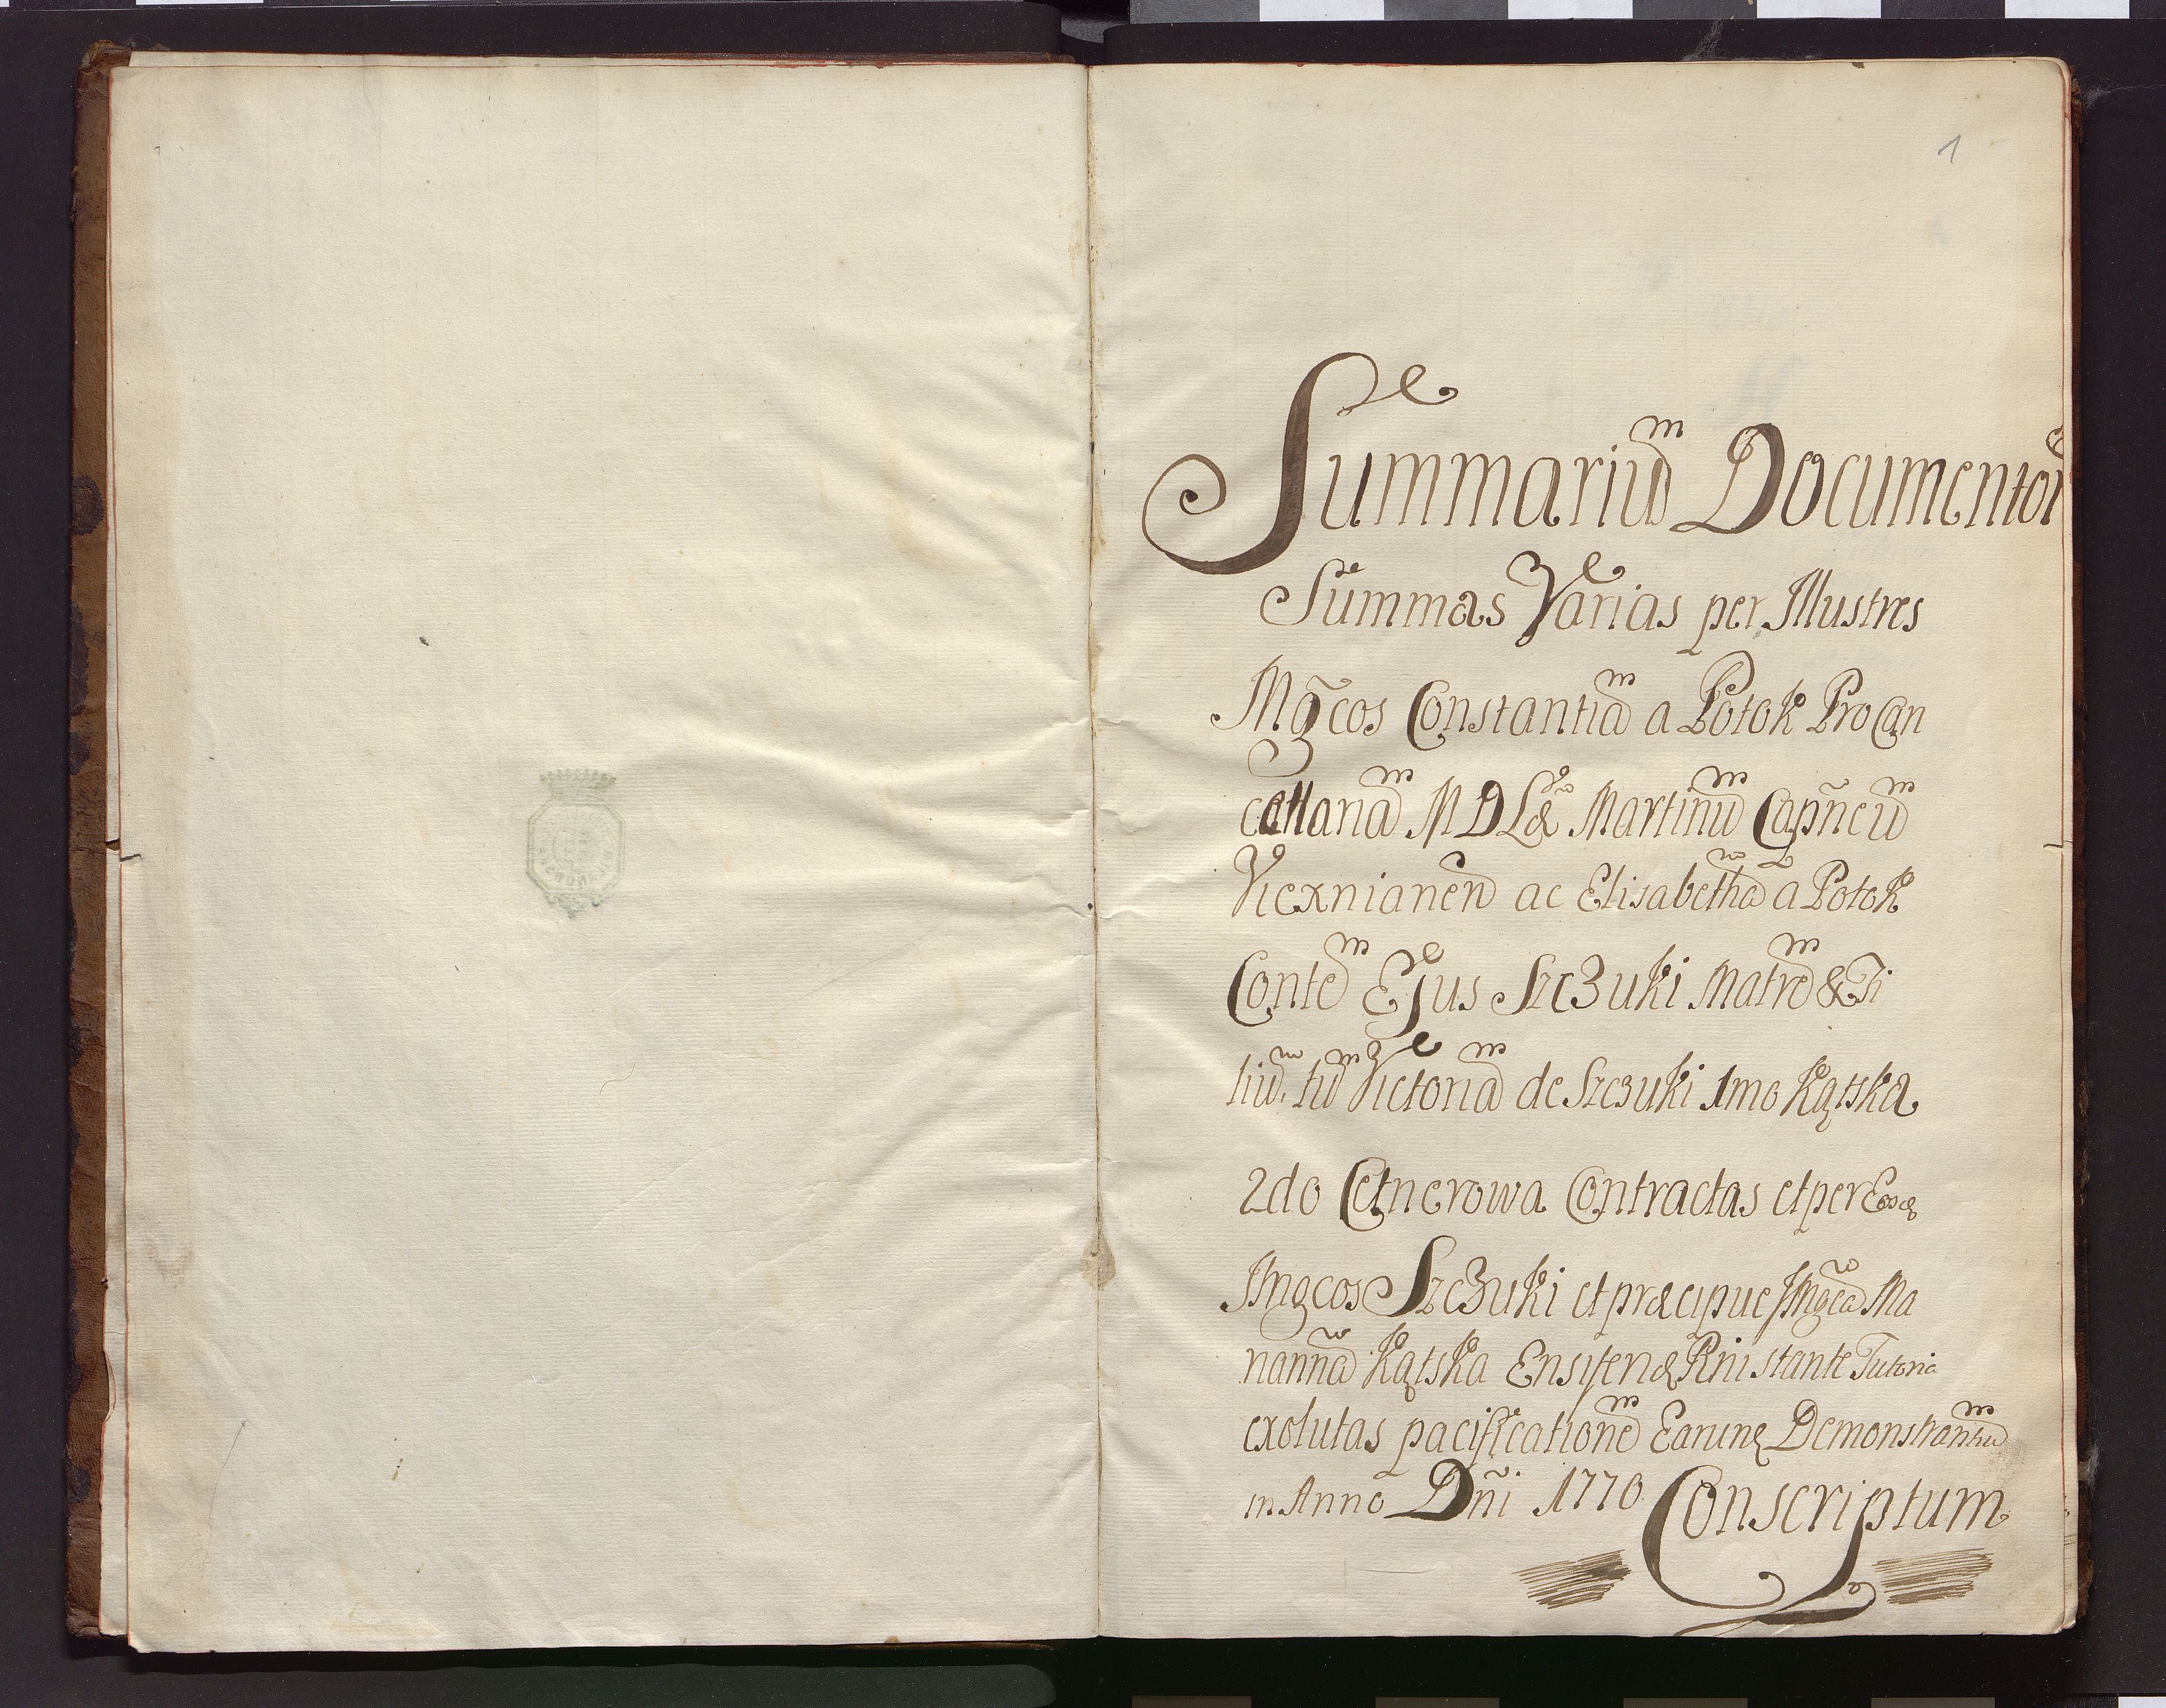 1
Summariu͞m Documentor
Summas Varias per Illustres
Mg̃cos Constantia͞m a Potok ProCan
cellaria͞m M D Læ Martinu͞m Capñeu͞m
ac Elisabetha͞m a Potok
Conte͞m Ejus Szczuki Matre͞m & Fi
liu͞m. tu͞m Victoria͞m de Szczuki 1mo Kątska
2do Cetnerowa Contractas et per
IMgcos Szczuki et præcipue IMgca͞m Ma
rianna͞m Kątska Ensiferæ Rni stante Tutoria
exolutas pacificatione͞m Earumq Demonstrantiu͞m
in Anno Dñi 1770 Conscriptum